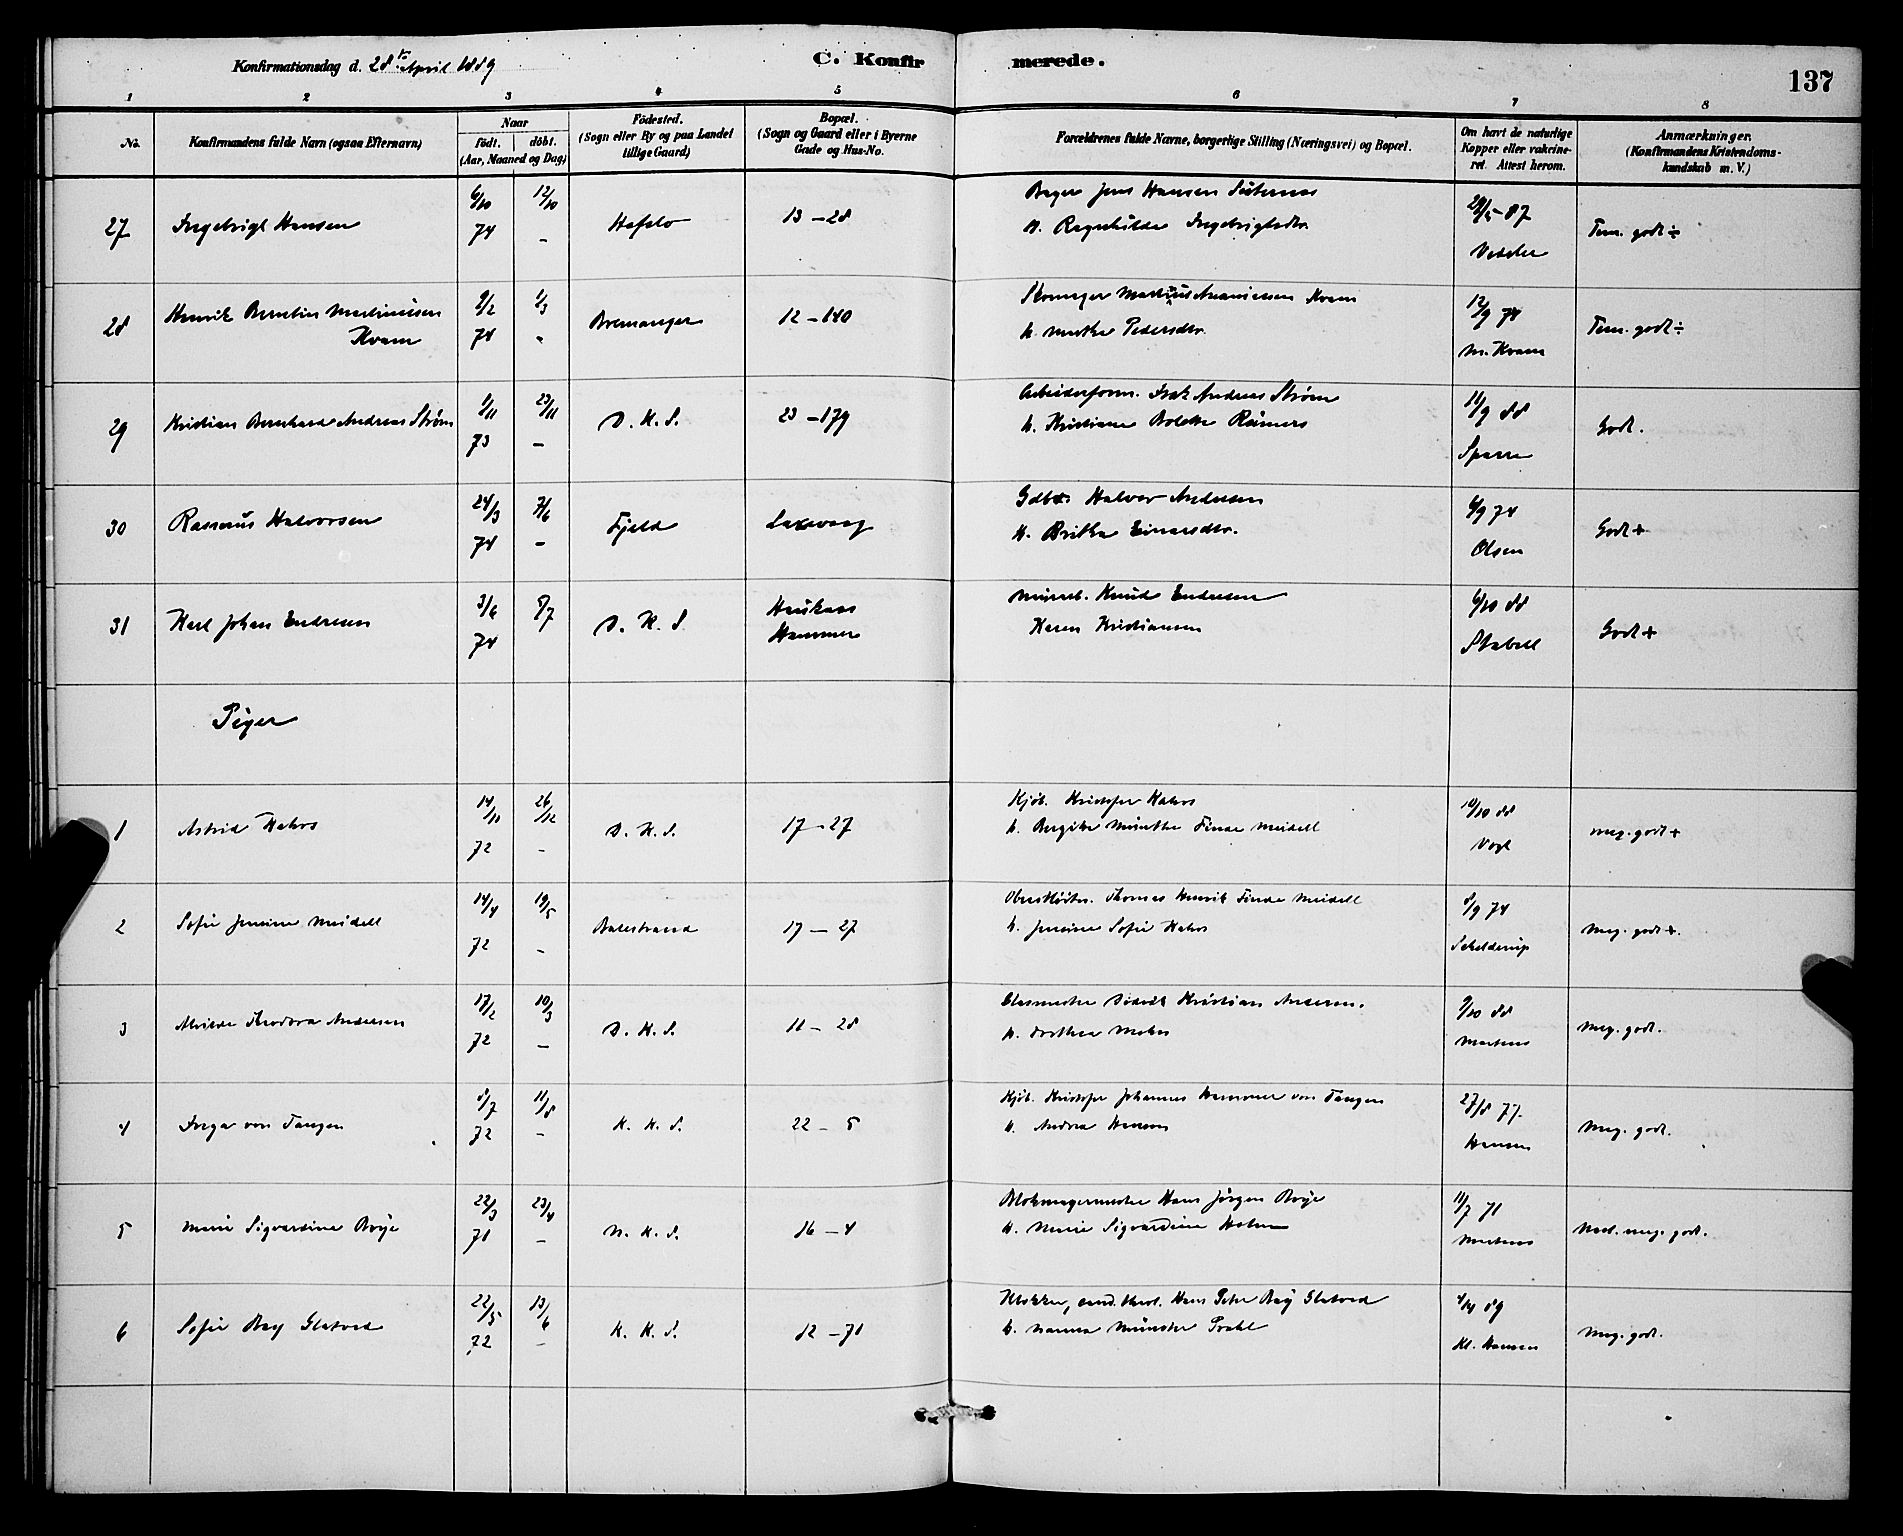 Konfirmationsdag d. 28de April 1889
C. Konfir
merede.
137
1 2 3 4 5 6 7 8
No.
Konfirmandens fulde Navn (ogsaa Efternavn)
Naar
födt. döbt.
(Aar, Maaned og Dag)
Födested.
(Sogn eller By og paa Landet
tillige Gaard)
Bopæl.
(Sogn og Gaard eller i Byerne
Gade og Hus-No.
Forældrenes fulde Navne, borgerlige Stilling (Næringsvei) og Bopæl.
Om havt de naturlige
Kopper eller vakcine-
ret. Attest herom.
Anmærkninger.
(Konfirmandens Kristendoms-
kundskab m. V.)
27 Ingebrigt Hansen 6/10 74 12/10 - Hafslo 13 - 28
Bager Jens Hansen
H. Ragnhilda Ingebrigtsdtr.
28/5 - 87 Tem. godt ÷
28 Henrik Berntin Martinusen
Kvam 9/2 74 1/3 - Bremanger 12 - 140
Skomager Martinus Kvam
H. Pedersdtr.
12/9 74 M. Kvam Tem. godt ÷
29 Kristian Bernhard Andreas Strøm 1/11 73 23/11 - D. K. S. 23 - 179
Arbeiderform. Isak Andreas Strøm
H. Kristiane
11/9 88 Sparre Godt.
30 Rasmus Halvorsen 24/3 74 7/6 - Fjeld Laxevaag
Gdbr. Halvor Andersen
H. Britha Einarsdtr.
6/9 74 Olsen Godt +
31 Karl Johan Endresen 3/6 74 5/7 D. K. S. Haukaas
Hammer
Knud Endresen
Karen Kristiansen
6/10 88 Stabell Godt +
Piger
1 Astrid Kahrs 14/11 72 26/12 - D. K. S. 17 - 27
Kjøb. Kristofer Kahrs
H. Birgitte Münthe Finde Meidell
10/10 88 Vogt meg. godt +
2 Sofie Jensine Meidell 14/4 72 19/5 - Balestrand 17 - 27
Thomas Henrik Finde Meidell
H. Jensine Sofie Kahrs
8/9 74 Schelderup Meg. godt +.
3 Alvilde Theodora Andersen 17/2 72 10/3 - D. K. S. 11 - 28
Glasmester Diderik Kristian Andersen.
H. Dorthea
9/10 88 Martens Meg. godt.
4 Inga von Tangen 8/7 72 11/8 - K. K. S. 22 - 5
Kjøb. Kristofer Johannes Hammer von Tangen
H. Andrea Hansen
27/8 77. Hansen Meg. godt.
5 Marie Sigvardine Bøje 22/3 71 23/4 - N. K. S. 16 - 4
Blokmagermester Hans Jørgen Bøje
H. Marie Sigvardine Holm
11/7 71 Martens Meg. godt.
6 Sofie Bøy Glatved 22/5 72 13/6 - K. K. S. 12 - 71
Klokker, cand. theol. Hans Peter Bøy Glatved
H. Hanna Münster Prahl
4/4 89 Kl. Hansen Meg. godt.